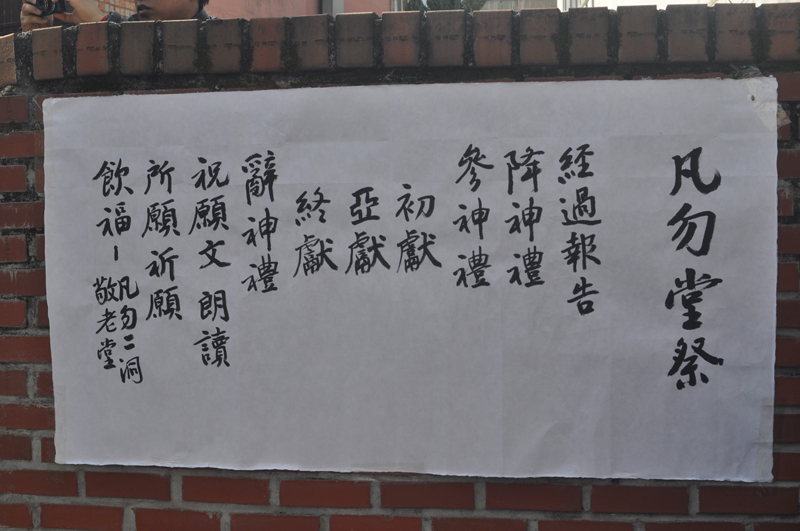 凡勿堂祭
經過報告
降神禮
參神禮
初獻
亞獻
終獻
辭神禮
祝願文朗讀
所願祈願
飮福－凡勿二洞
敬老堂